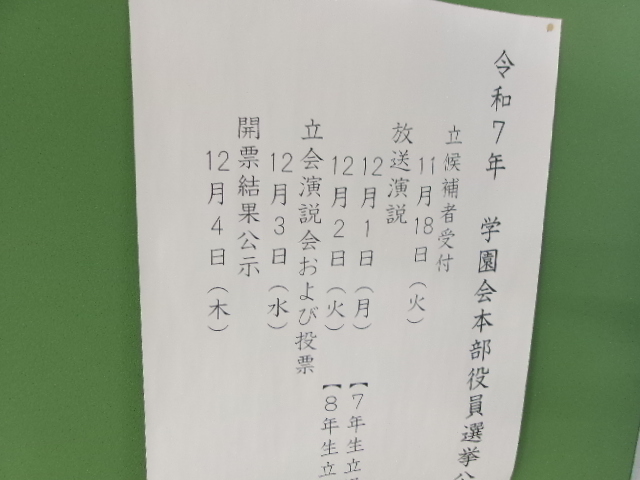 令和7年 学園会本部役員選挙公
立候補者受付
11月18日(火)
放送演説
12月1日(月)【7年生立
12月2日(火)【8年生立
立会演説会および投票
12月3日(水)
開票結果公示
12月4日(木)